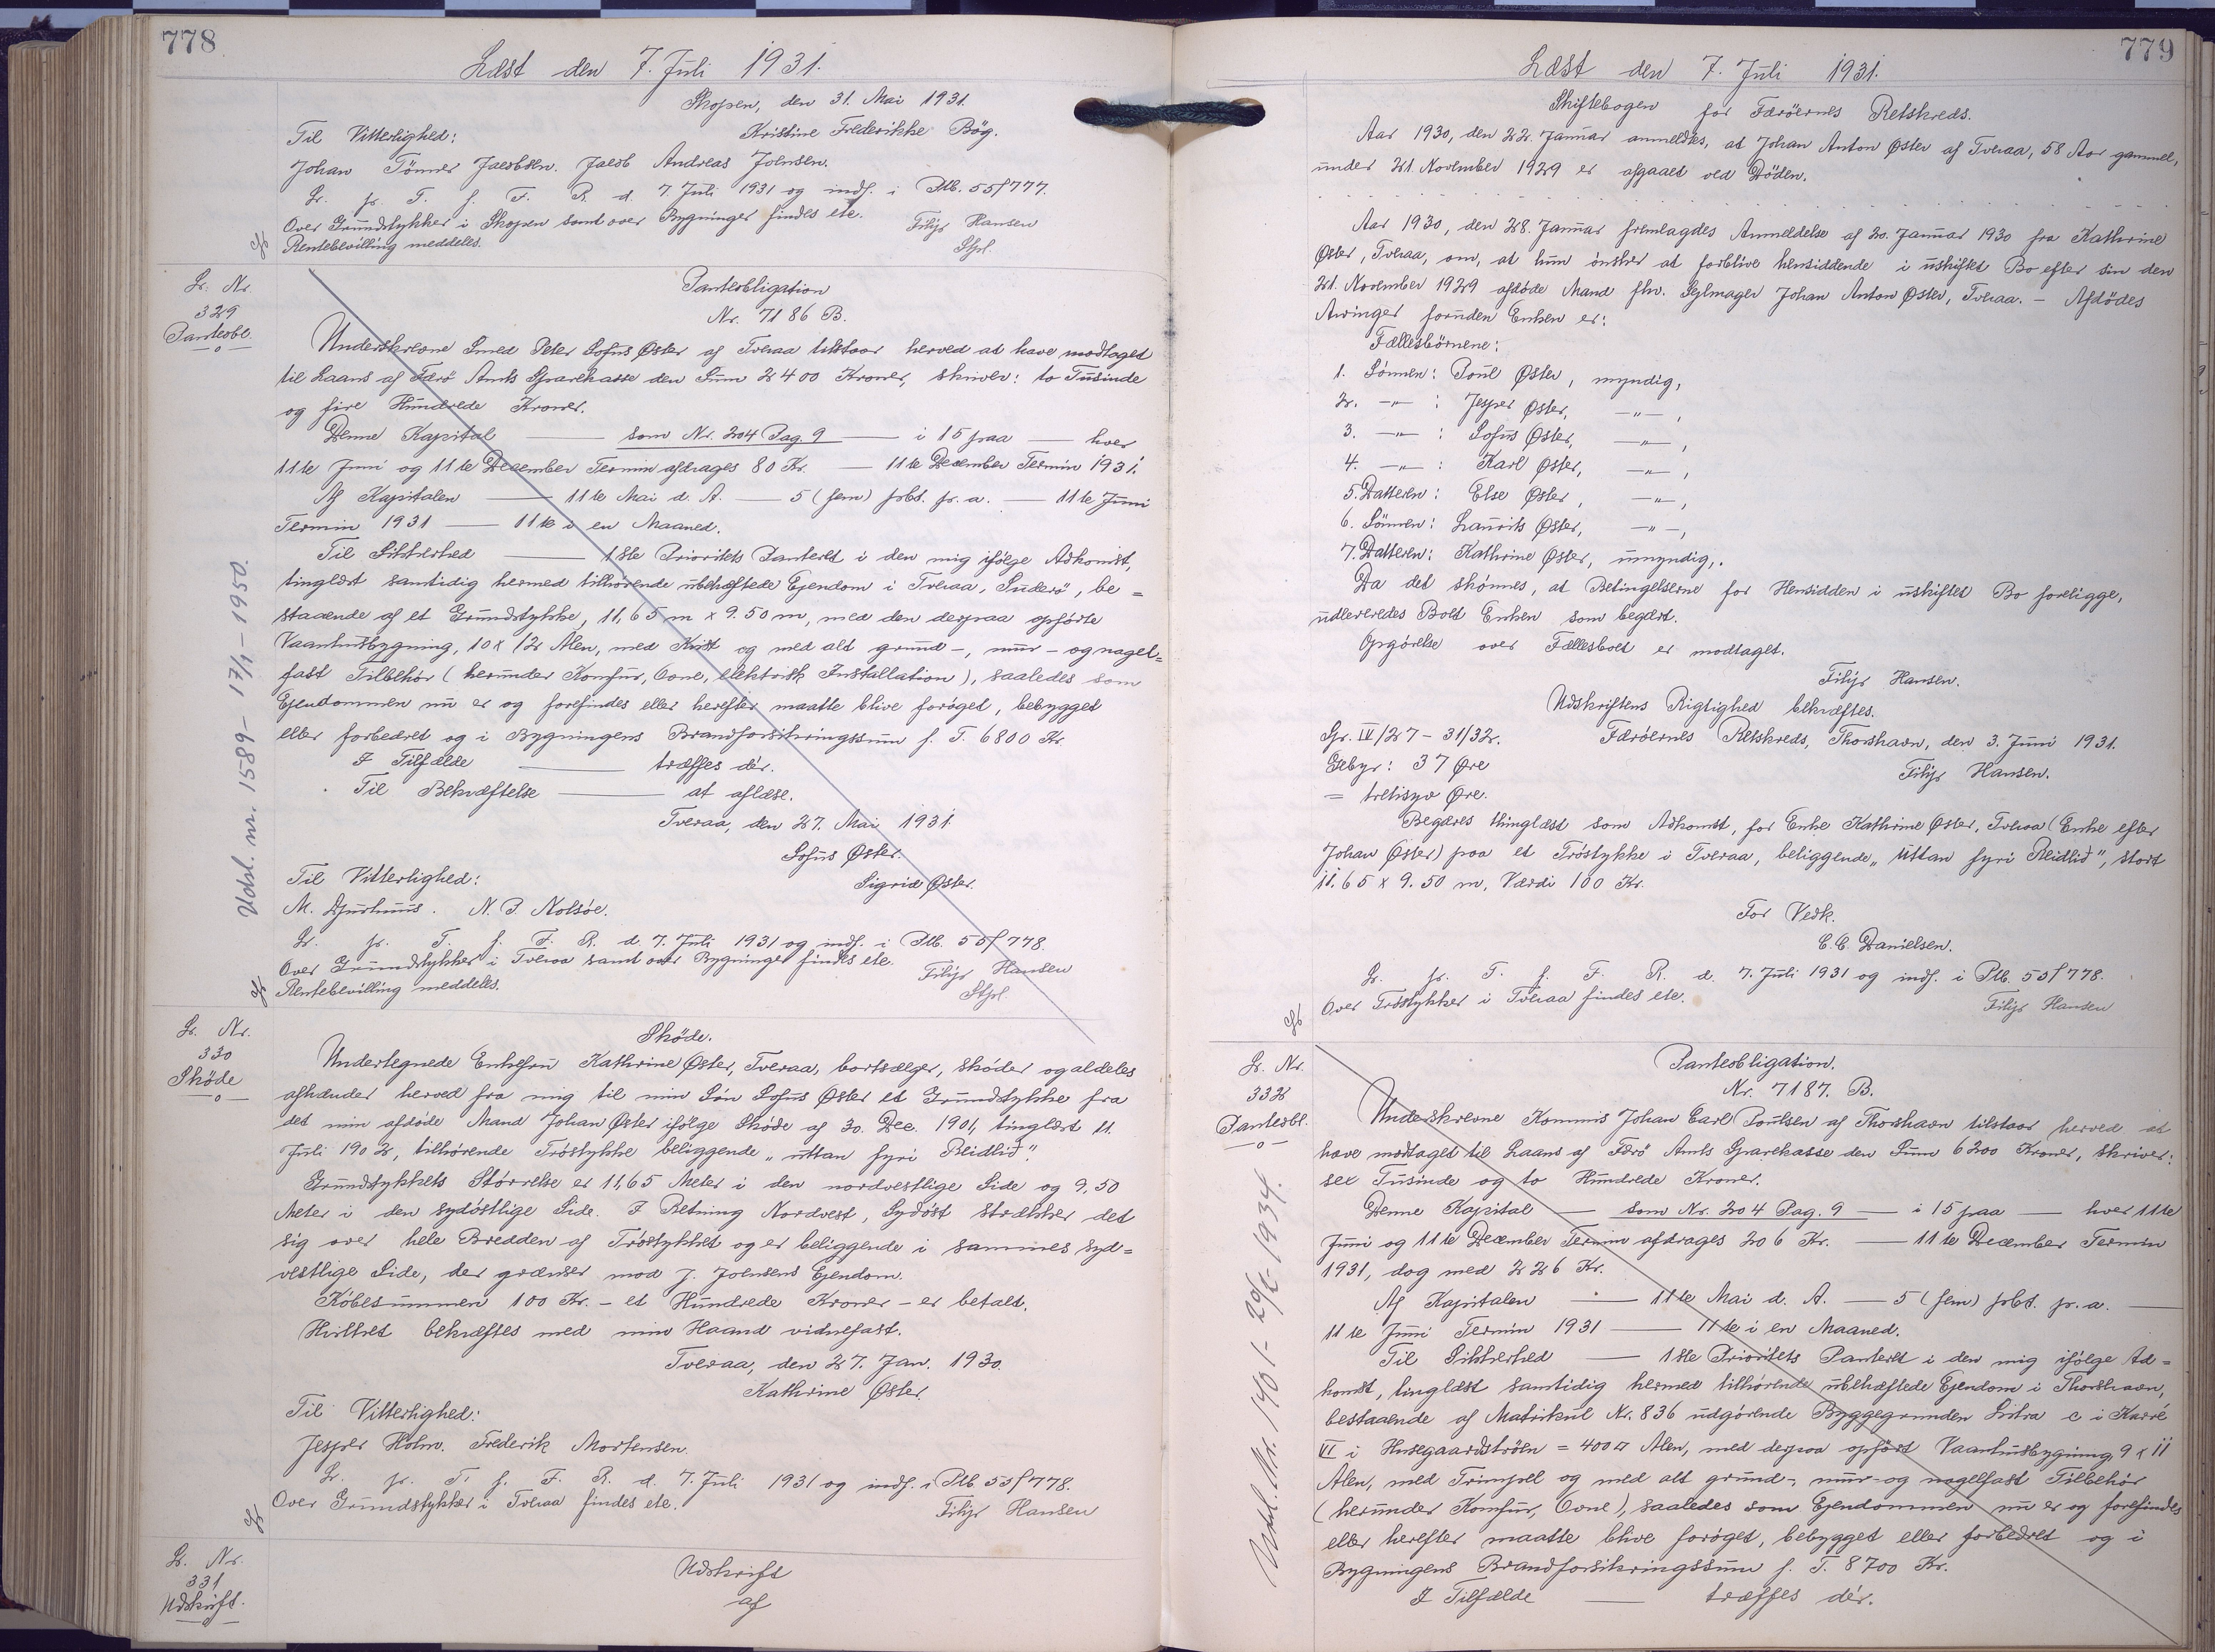 778
Læst den 7. Juli 1931.
Skopen, den 31. Mai 1931.
Til Vitterlighed:
Kristine Frederikke Bög.
Johan Tönner Jacobsen. Jacob Andreas Joensen.
L. p. T. f. F. R. d. 7. Juli 1931 og indf. i Ptb. 55f 777.
Over Grundstykker i Skopen samt over Bygninger findes etc.
Filip Hansen
Rentebevilling meddeles.
Stpl.
L. Nr.
329
Panteobl.
Panteobligation
Nr. 7186 B.
Underskrevne Smed Peter Sofus Øster af Tveraa tilstaar herved at have modtaget
til Laans af Færö Amts Sparekasse den Sum 2400 Kroner, skriver: to Tusinde
og fire Hundrede Kroner.
Denne Kapital — som Nr. 204 Pag. 9 — i 15 paa — hver
11te Juni og 11te December Termin afdrages 80 Kr. — 11te December Termin 1931.
Af Kapitalen — 11te Mai d. A. — 5 (fem) pCt. p. a. — 11te Juni
Termin 1931 — 11te i en Maaned.
Til Sikkerhed — 1ste Prioritets Panteret i den mig ifølge Adkomst,
tinglæst samtidig hermed tilhørende ubehæftede Ejendom i Tveraa, Suderö, be=
staaende af et Grundstykke, 11,65 m x 9.50 m, med den derpaa opførte
Vaanhusbygning, 10 x 12 Alen, med Kvist og med alt grund-, mur- og nagel=
fast Tilbehör (herunder Komfur, Ovne, elektrisk Installation), saaledes som
Ejendommen nu er og forefindes eller herefter maatte blive forøget, bebygget
eller forbedret og i Bygningens Brandforsikringssum f. T. 6800 Kr.
I Tilfælde — træffes dér.
Til Bekræftelse — at aflæse.
Tveraa, den 27. Mai 1931.
Sofus Øster.
Til Vitterlighed:
Sigrid Øster.
M. Djurhuus. N. P. Nolsöe.
L. p. T. f. F. R. d. 7. Juli 1931 og indf. i Ptb. 55f 778.
Over Grundstykker i Tveraa samt over Bygninger findes etc.
Filip Hansen
Rentebevilling meddeles.
Stpl.
Udsl. nr. 1589 - 17/1 - 1950.
L. Nr.
330
Sköde
Sköde.
Undertegnede Enkefru Kathrine Øster, Tveraa, bortsælger, skøder og aldeles
afhænder herved fra mig til min Sön Sofus Øster et Grundstykke fra
det min afdöde Mand Johan Øster ifölge Sköde af 30. Dec. 1901, tinglæst 11.
Juli 1902, tilhörende Tröstykke beliggende „uttan fyri Reidlid".
Grundstykkets Størrelse er 11,65 Meter i den nordvestlige Side og 9,50
Meter i den sydöstlige Side. I Retning Nordvest, Sydöst strækker det
sig over hele Bredden af Tröstykket og er beliggende i sammes syd=
vestlige Side, der grænser mod J. Joensens Ejendom.
Köbesummen 100 Kr. - et Hundrede Kroner - er betalt.
Hvilket bekræftes med min Haand vidnefast.
Tveraa, den 27. Jan. 1930.
Kathrine Øster.
Til Vitterlighed:
Jesper Holm. Frederik Mortensen.
L. p. T. f. F. R. d. 7. Juli 1931 og indf. i Ptb. 55f 778.
Over Grundstykker i Tveraa findes etc.
Filip Hansen
L. Nr.
331
Udskrift.
Udskrift
af
779
Læst den 7. Juli 1931.
Skiftebogen for Færöernes Retskreds.
Aar 1930, den 22. Januar anmeldtes, at Johan Anton Øster af Tveraa, 58 Aar gammel,
under 21. November 1929 er afgaaet ved Döden.
Aar 1930, den 28. Januar fremlagdes Anmeldelse af 20. Januar 1930 fra Kathrine
Øster, Tveraa, om, at hun önsker at forblive hensiddende i uskiftet Bo efter sin den
21. November 1929 afdöde Mand fhv. Sejlmager Johan Anton Øster, Tveraa. - Afdödes
Arvinger foruden Enken er:
Fællesbörnene:
1. Sönnen: Poul Øster, myndig,
2. -"- : Jesper Øster, -"-,
3. -"- : Sofus Øster, -"-,
4. -"- : Karl Øster, -"-,
5. Datteren: Else Øster, -"-,
6. Sönnen: Laurits Øster, -"-,
7. Datteren: Kathrine Øster, umyndig,.
Da det skönnes, at Betingelserne for Hensidden i uskiftet Bo foreligge,
udleveredes Boet Enken som begært.
Opgörelse over Fællesboet er modtaget.
Filip Hansen.
Udskriftens Rigtighed bekræftes.
Gr. IV/27 - 31/32.
Færöernes Retskreds, Thorshavn, den 3. Juni 1931.
Gebyr: 37 Øre
Filip Hansen.
= tretisyv Øre.
Begæres thinglæst som Adkomst, for Enke Kathrine Øster, Tveraa (Enke efter
Johan Øster) paa et Tröstykke i Tveraa, beliggende „Uttan fyri Reidlid", stort
11.65 x 9.50 m, Værdi 100 Kr.
For Vedk.
C.C. Danielsen.
L. p. T. f. F. R. d. 7. Juli 1931 og indf. i Ptb. 55f 778.
Over Tröstykker i Tveraa findes etc.
Filip Hansen
L. Nr.
332
Panteobl.
Panteobligation.
Nr. 7187. B.
Underskrevne Kommis Johan Carl Poulsen af Thorshavn tilstaar herved at
have modtaget til Laans af Færö Amts Sparekasse den Sum 6200 Kroner, skriver:
sex Tusinde og to Hundrede Kroner.
Denne Kapital — som Nr. 204 Pag. 9 — i 15 paa — hver 11te
Juni og 11te December Termin afdrages 206 Kr. — 11te December Termin
1931, dog med 226 Kr.
Af Kapitalen — 11te Mai d. A. — 5 (fem) pCt. p. a. —
11te Juni Termin 1931 — 11te i en Maaned.
Til Sikkerhed — 1ste Prioritets Panteret i den mig ifølge Ad=
komst, tinglæst samtidig hermed tilhørende ubehæftede Ejendom i Thorshavn,
bestaaende af Matrikul Nr. 836 udgörende Byggegrunden Litra c i Karré
VI i Husegaardströen = 400 □ Alen, med derpaa opført Vaanhusbygning 9 x 11
Alen, med Trempel og med alt grund-, mur- og nagelfast Tilbehör
(herunder Komfur, Ovne), saaledes som Ejendommen nu er og forefindes
eller herefter maatte blive forøget, bebygget eller forbedret og i
Bygningens Brandforsikringssum f. T. 8700 Kr.
I Tilfælde — træffes dér.